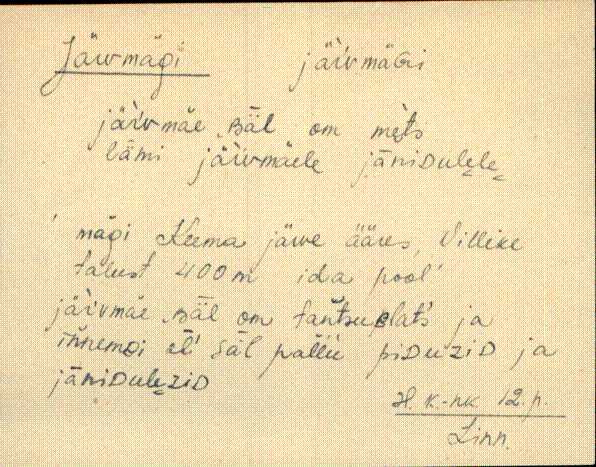 Järvmägi järvmäGi
järvmäe ᴗäl om mets
lämi järvmäele jäniDulele
'mägi Keema järve ääres, Villike
talust 400 m ida pool'
järvmäe ᴗäl om tantsuplats ja
innemDi el' säl pallii piDuziD ja
jäniDuleziD
H. k.-nk 12. p.
Linn.